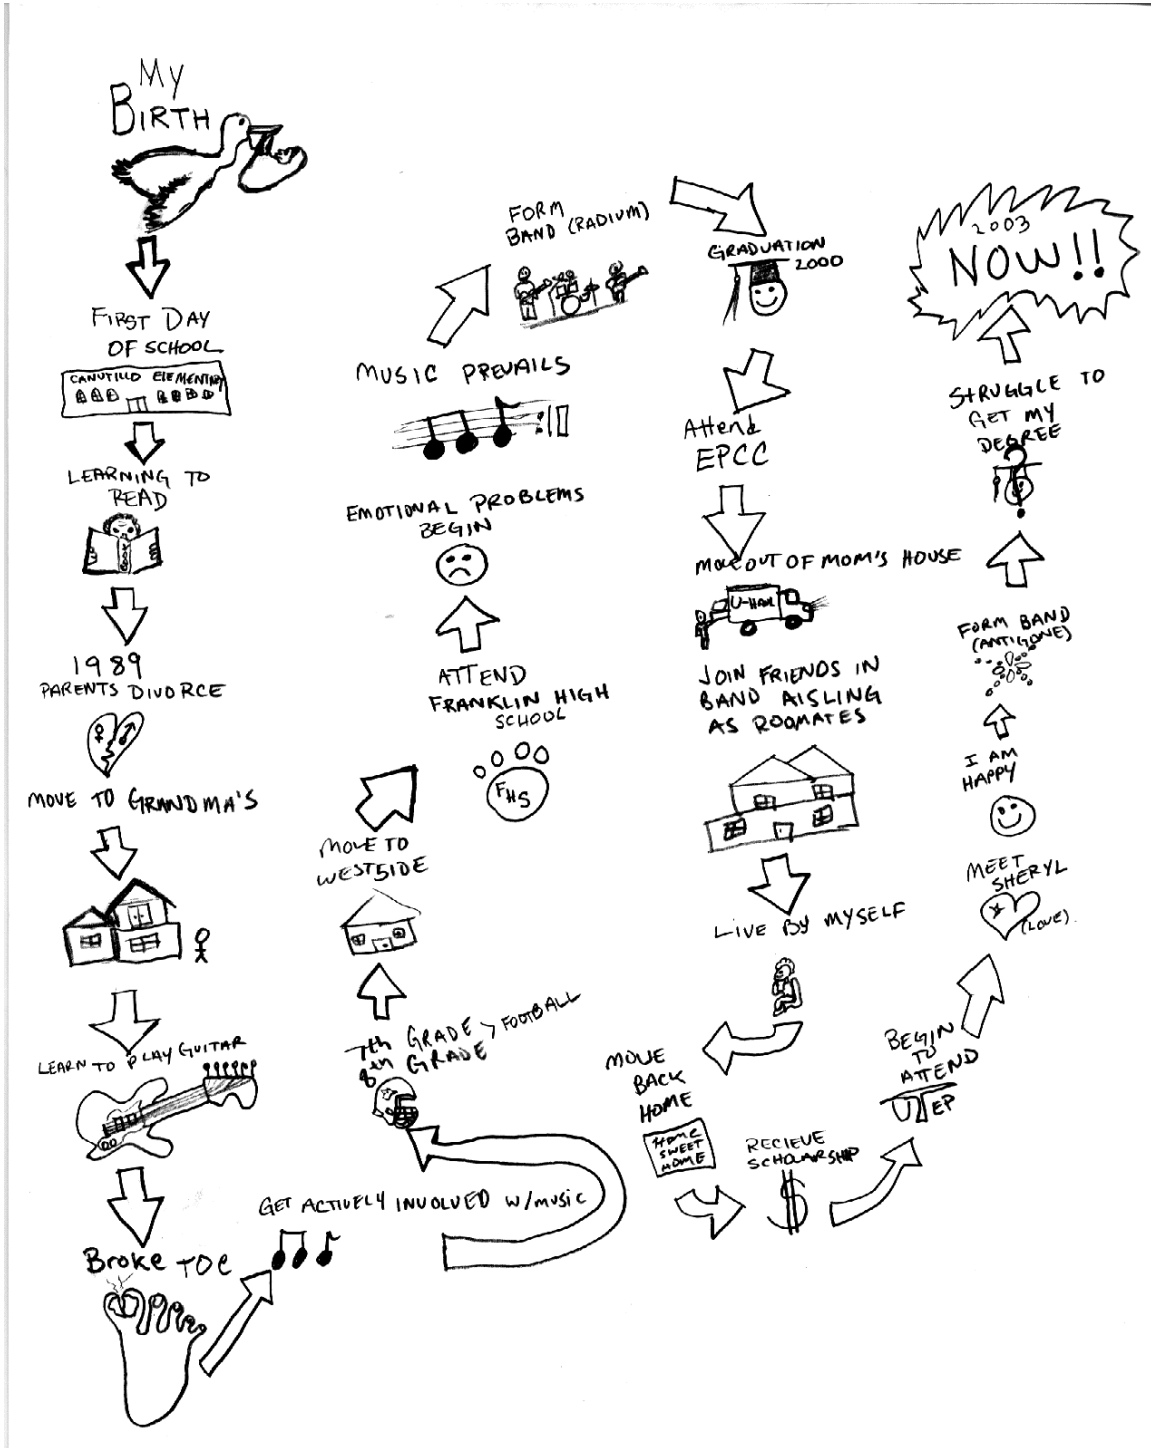 MY
BIRTH
FIRST DAY
OF SCHOOL
CANUTILLO ELEMENTRY
LEARNING TO
READ
BOOK
1989
PARENTS DIVORCE
MOVE TO GRANDMA'S
LEARN TO PLAY GUITAR
Broke TOE
GET ACTIVELY INVOLVED W/MUSIC
7th GRADE > FOOTBALL
8th GRADE
MOVE TO
WESTSIDE
ATTEND
FRANKLIN HIGH
SCHOOL
FHS
EMOTIONAL PROBLEMS
BEGIN
MUSIC PREVAILS
FORM
BAND (RADIUM)
GRADUATION
2000
Attend
EPCC
MOVE OUT OF MOM'S HOUSE
U-HAUL
JOIN FRIENDS IN
BAND AISLING
AS ROOMATES
LIVE BY MYSELF
MOVE
BACK
HOME
HOME
SWEET
HOME
RECIEVE
SCHOLARSHIP
$
BEGIN
TO
ATTEND
UTEP
MEET
SHERYL
(LOVE).
I AM
HAPPY
FORM BAND
(ANTIGONE)
STRUGGLE TO
GET MY
DEGREE
?
2003
NOW!!